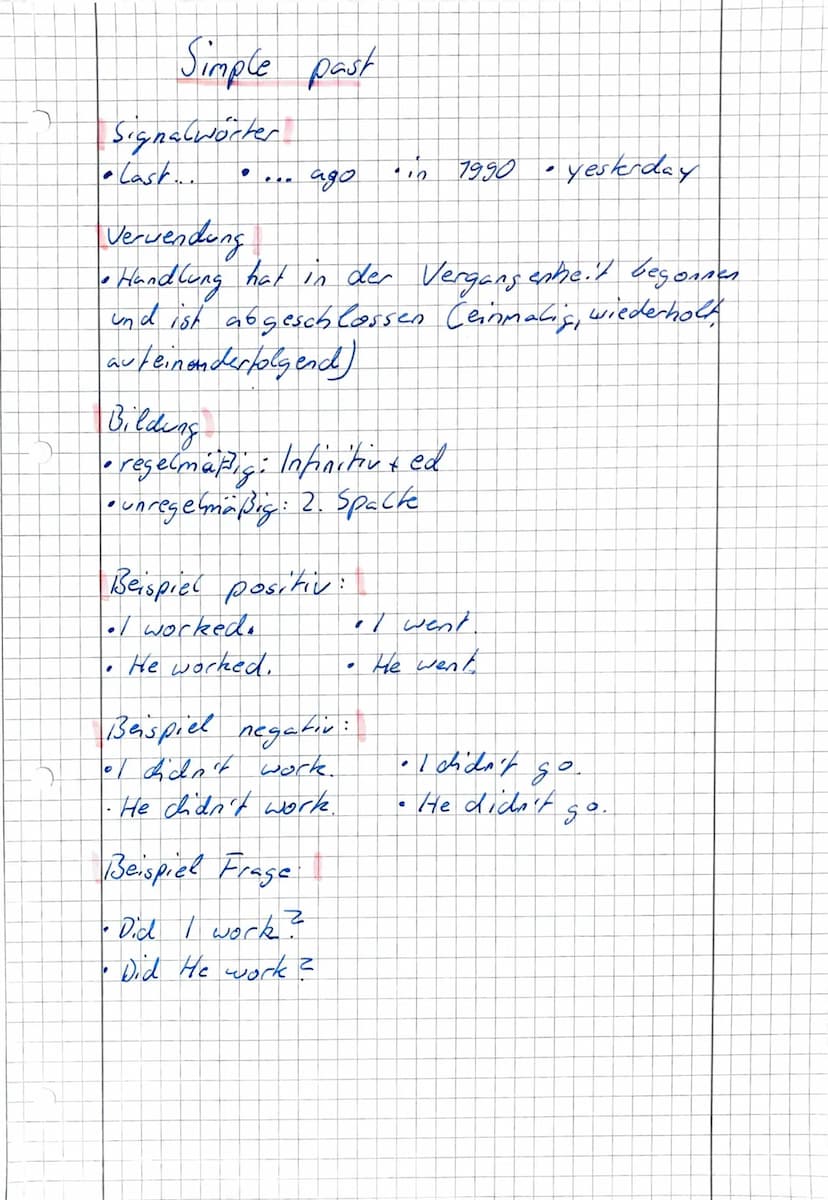 Simple past
Signalwörter
• Last... • ... ago • in 1990 • yesterday
Verwendung
• Handlung hat in der Vergangenheit begonnen
und ist abgeschlossen (einmalig, wiederholt,
aufeinanderfolgend)
Bildung
• regelmäßig: Infinitiv + ed
• unregelmäßig: 2. Spalte
Beispiel positiv:
• I worked. • I went.
• He worked. • He went.
Beispiel negativ:
• I didn't work. • I didn't go.
• He didn't work. • He didn't go.
Beispiel Frage
• Did I work?
• Did He work?